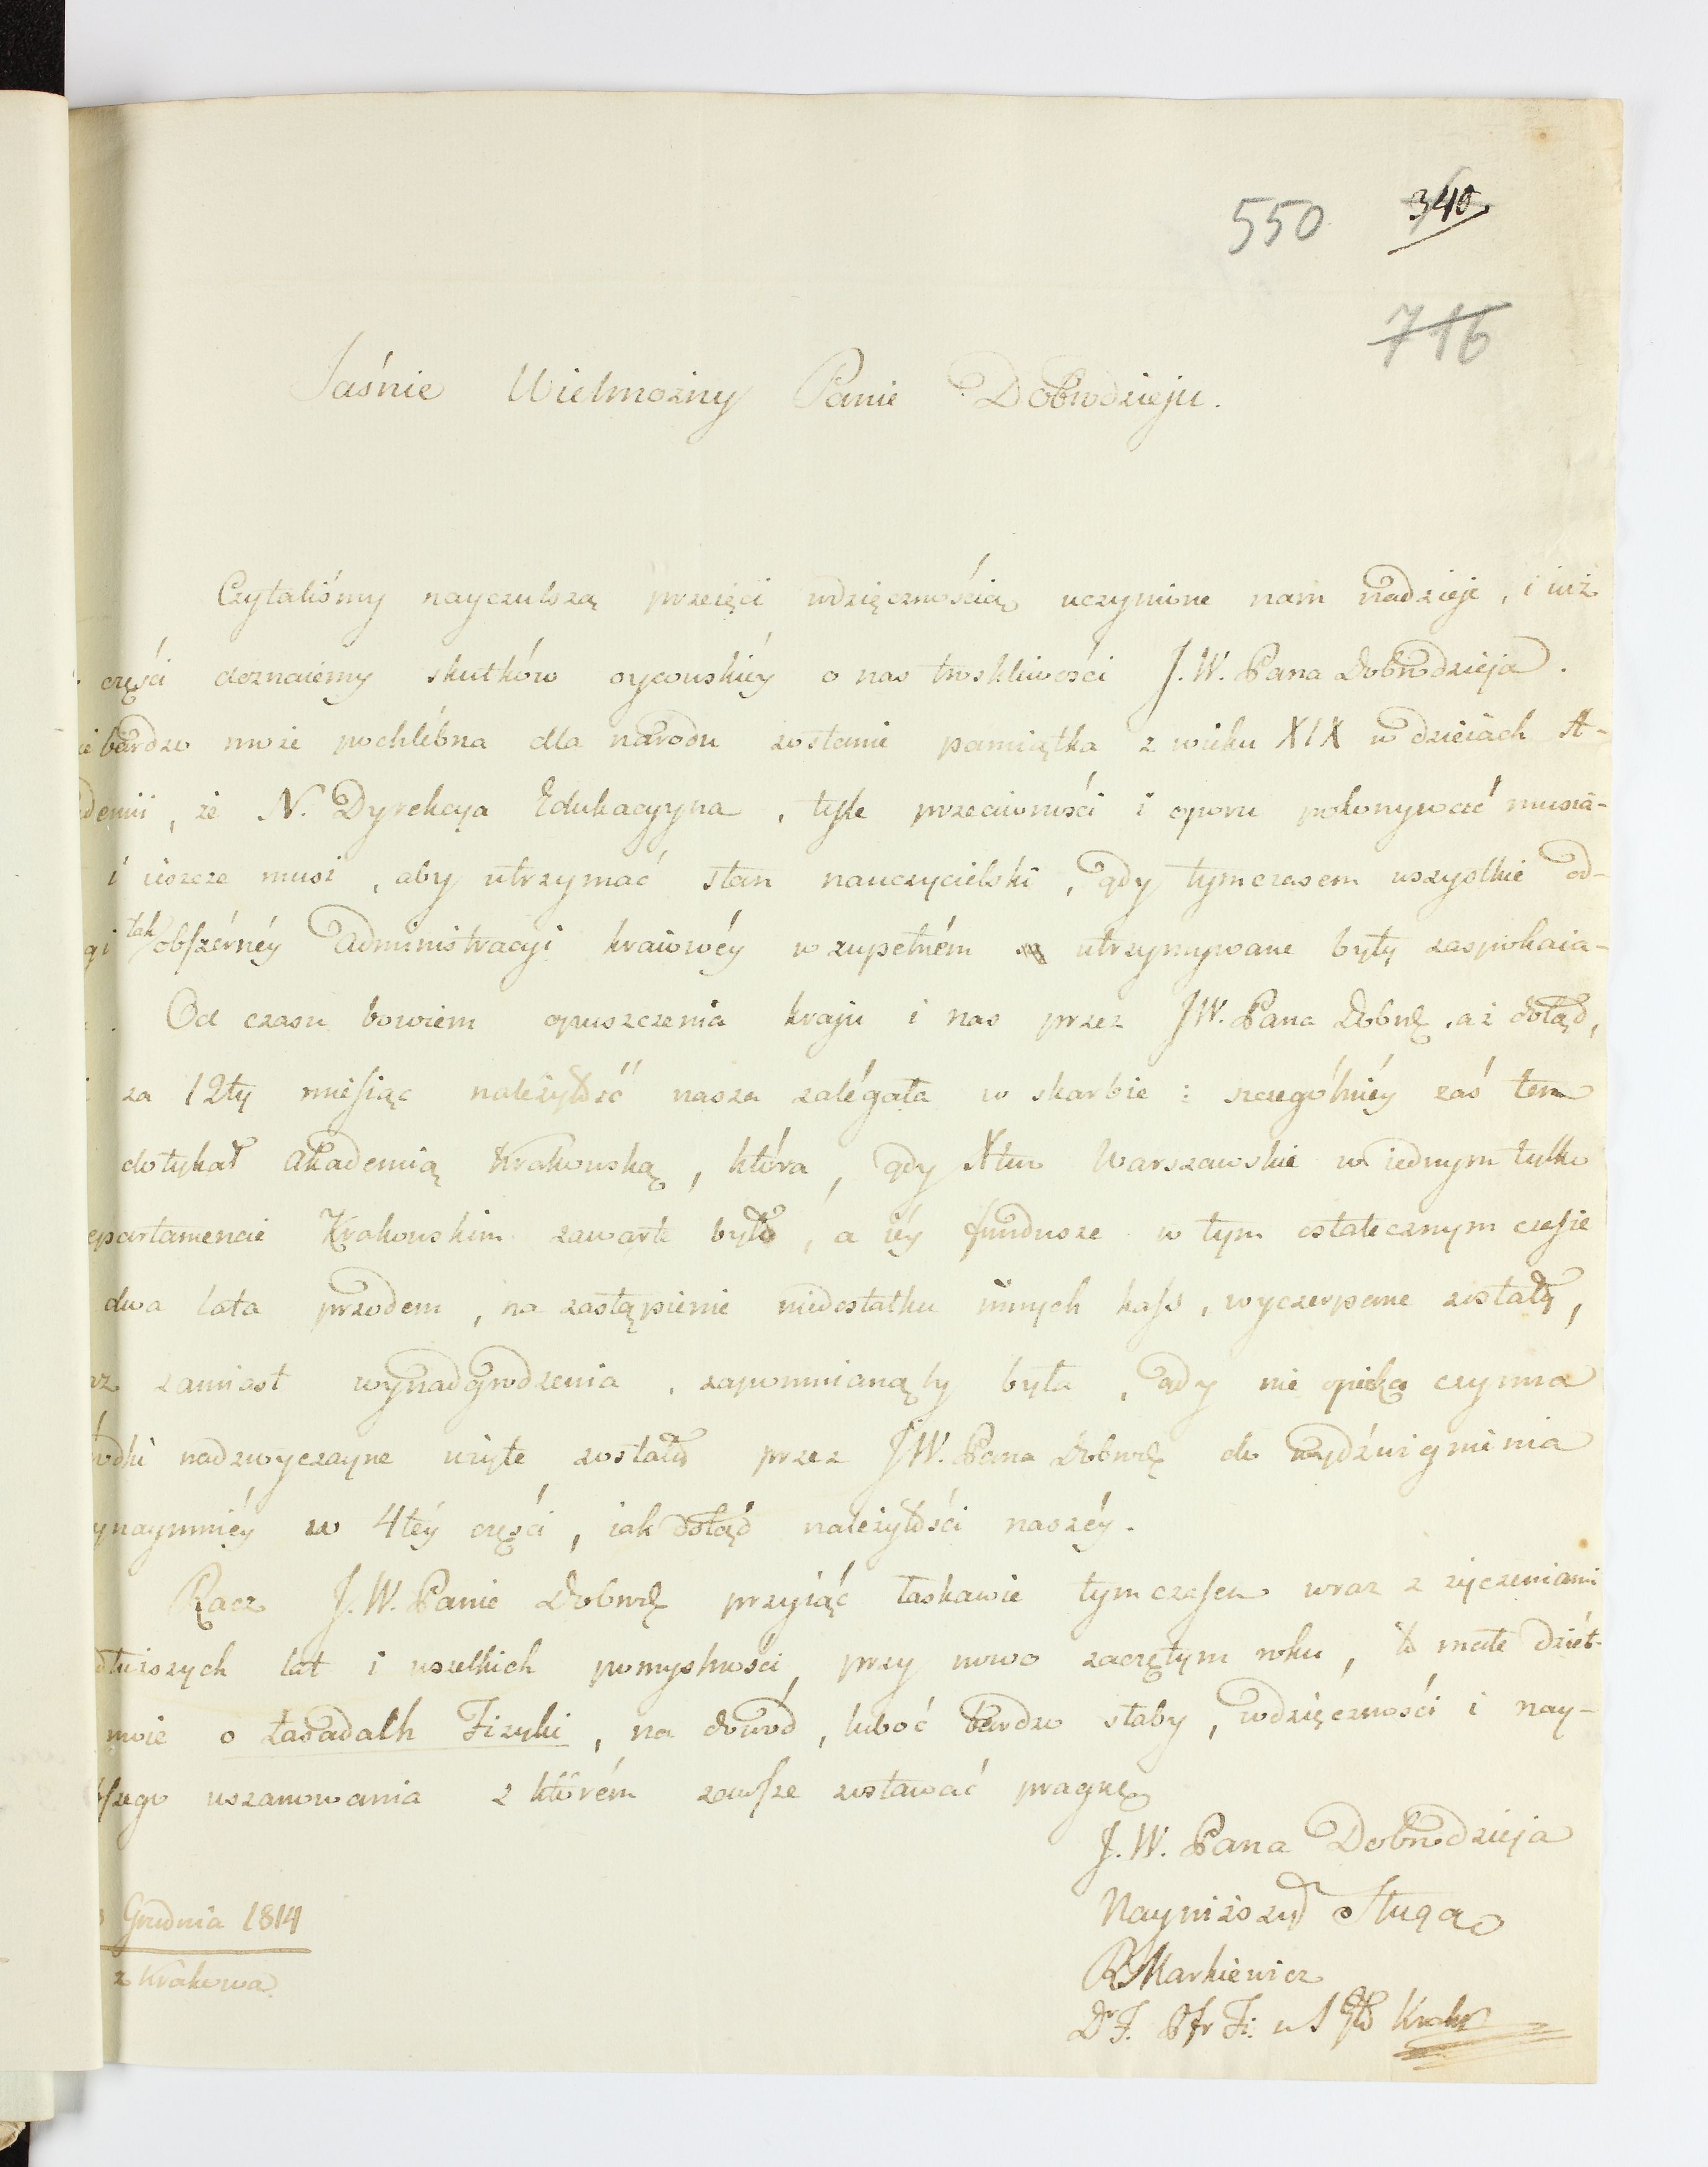 550 340
716
Jaśnie Wielmożny Panie Dobrodzieju.
Czytaliśmy nayczulszą przeięci wdzięcznością uczynione nam nadzieje, i iuż
części doznaiemy skutków oycowskiéy o nas troskliwości J.W. Pana Dobrodzieja.
bardzo może pochlébna dla narodu zostanie pamiątka z wieku XIX w dzieiach A-
demii, że N. Dyrekcya Edukacyyna, tyle przeciwności i oporu pokonywać musia-
i ieszcze musi, aby utrzymać stan nauczycielski, gdy tymczasem wszystkie od-
gi tak obszérnéy Administracyi kraiowéy w zupełném utrzymywane były zaspokaia-
Od czasu bowiem opuszczenia kraju i nas przez JW. Pana Dobrdz. aż dotąd,
za 12ty miesiąc należytość nasza zalégała w skarbie: szczegolniéy zaś ten
dotykał Akademią Krakowską, która, gdy Xtwo Warszawskie w iednym tylko
epartamencie Krakowskim zawarte było, a iéy fundusze w tym ostatecznym czasie
dwa lata przodem, na zastąpienie niedostatku innych kass, wyczerpane zostały,
az zamiast wynadgrodzenia, zapomnianąby była, gdy nie opieka czynna
rodki nadzwyczayne użyte zostały przez JW. Pana Dobrdz. do wydźwignienia
ynaymniéy w 4téy części, iak dotąd należytości naszéy.
Racz J.W. Panie Dobrdz. przyiąć łaskawie tym czasem wraz z życzeniami
dłuższych lat i wszelkich pomyslności, przy nowo zaczętym roku, to małe dzieł-
moie o Zasadach Fizyki, na dowód, luboć bardzo słaby, wdzięczności i nay-
bszego uszanowania z którém zawsze zostawać pragnę
J.W. Pana Dobrodzieja
Nayniższy Sługa
R Markiewicz
Dr F. Pfr Fi: w S Gł Krako
Grudnia 1814
z Krakowa.